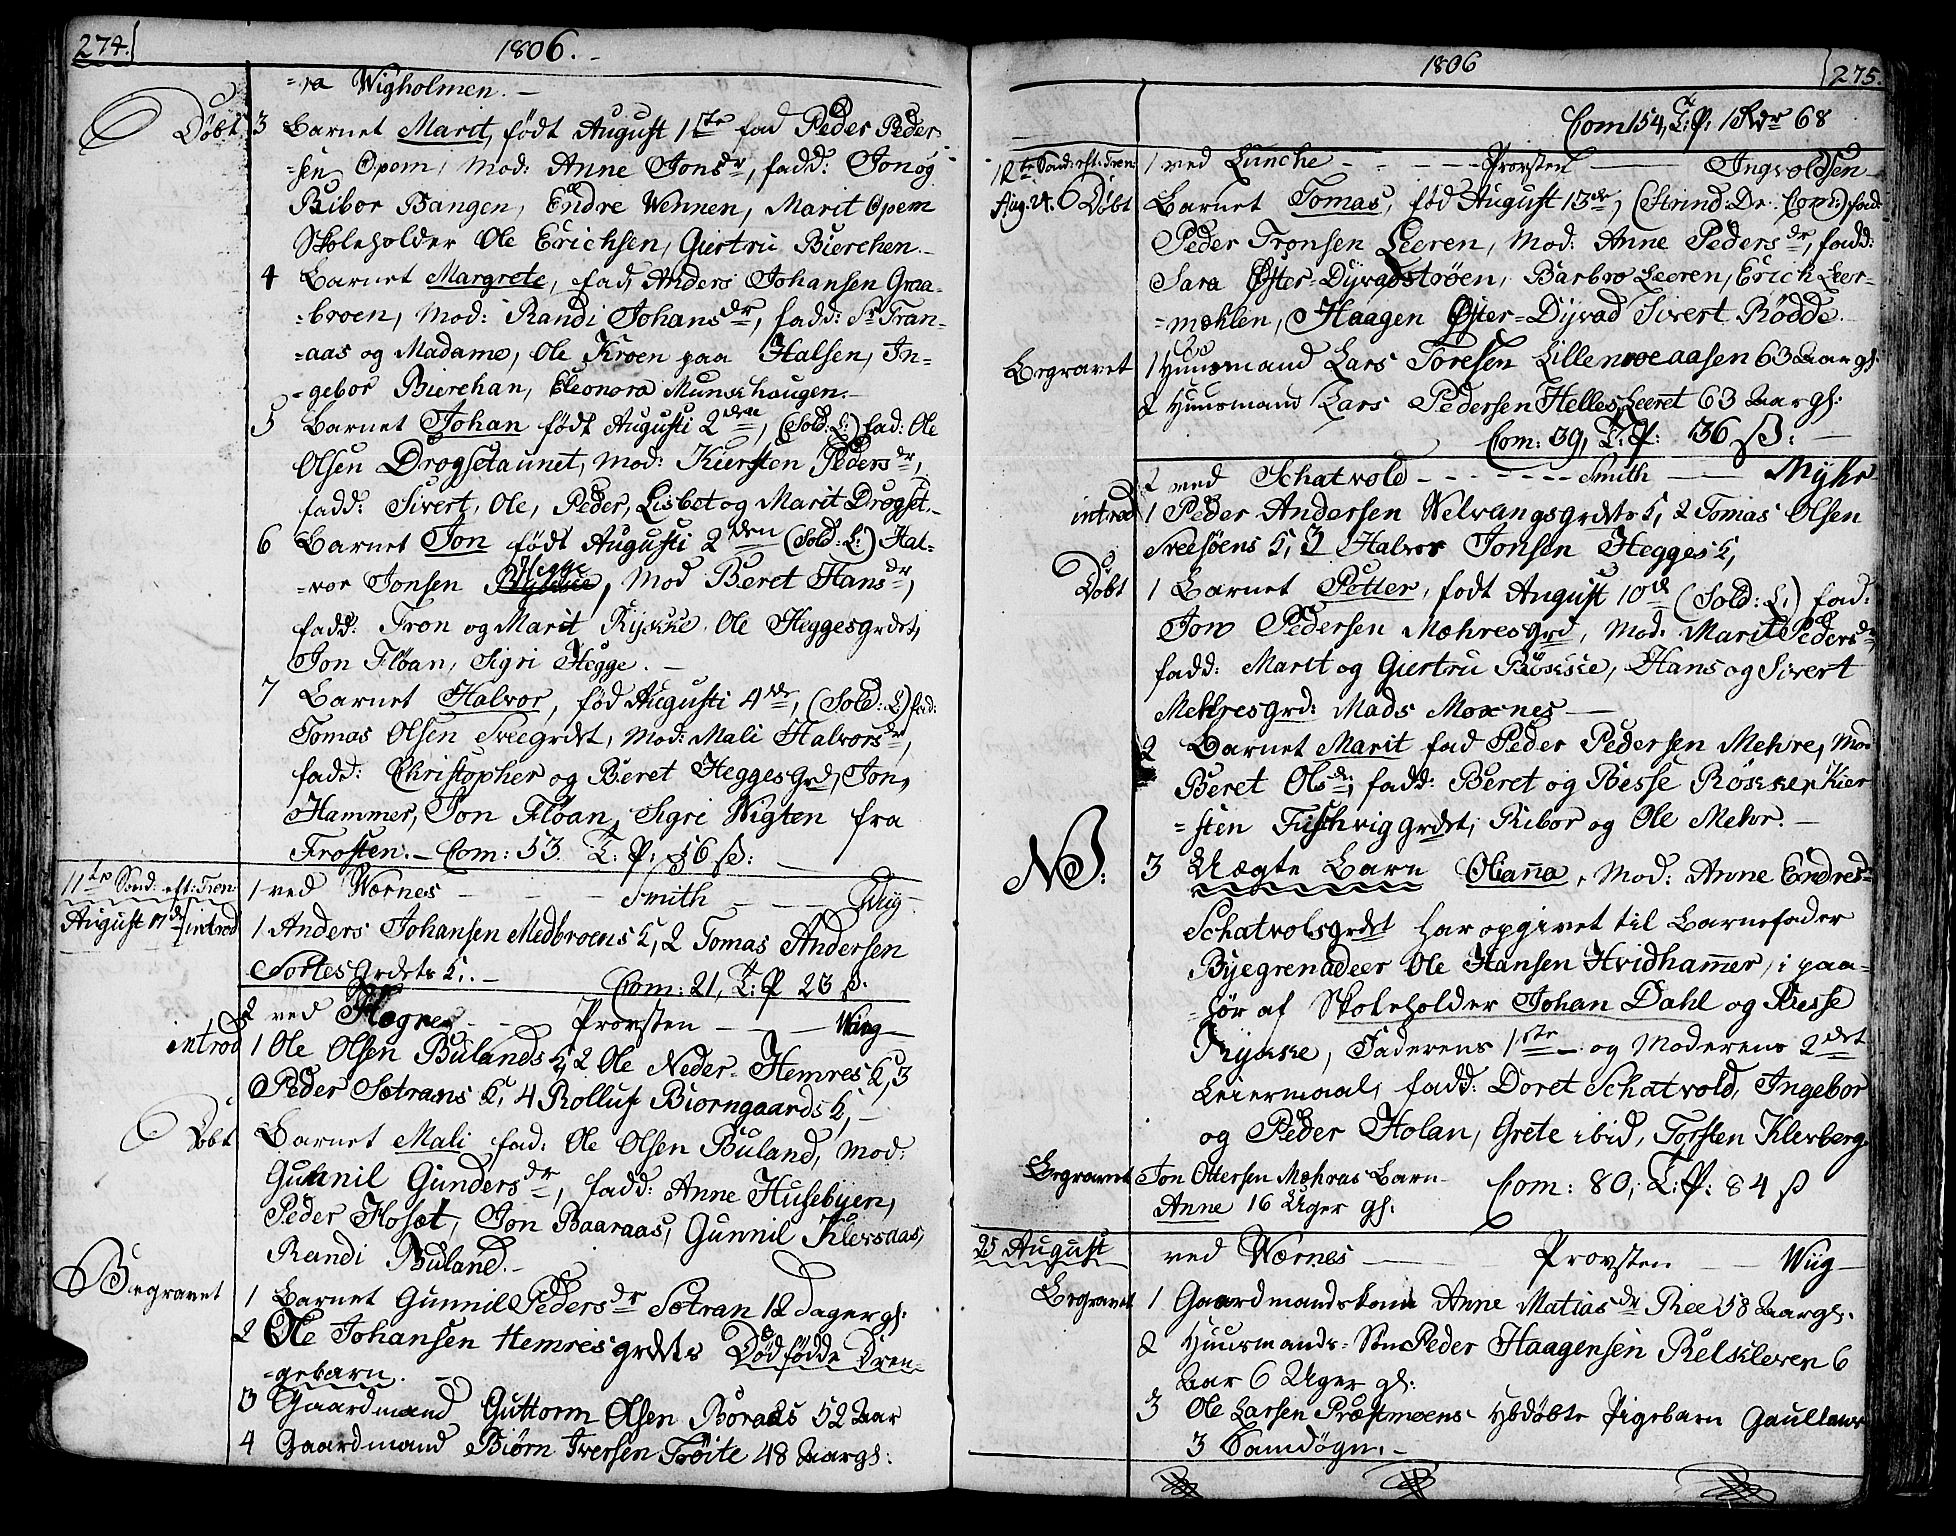 274.
1806.
=ra Wigholmen.
Døbt 3 Barnet Marit, født August 1ste fad Peder Peder
=sen Opem, Mod: Anne Jonsdr, fadd: Jon og
Ribor Bangen, Endre Wennen, Marit Opem
Skoleholder Ole Erichsen, Giertru Bierchen.
4 Barnet Margrete, fad, Anders Johansen Graa=
=broen, Mod: Randi Johansdr, fadd: Sr Tran=
=aas og Madame, Ole Kroen paa Halsen, In=
=gebor Bierchan, Eleonora Munkhaugen.
5 Barnet Johan født Augusti 2den, (Sold: L:) fad: Ole
Olsen Drogsetaunet, Mod: Kiersten Pedersdr,
fadd: Sivert, Ole, Peder, Lisbet og Marit Drogset.
6 Barnet Jon født Augusti 2den (Sold: L:) Hal=
=vor Jonsen Hegge, Mod Beret Hansdr,
fadd: Tron og Marit Rykke, Ole Heggesgrdet,
Jon Fløan, Sigri Hegge.
7 Barnet Halvor, fød Augusti 4de, (Sold: L) fad:
Tomas Olsen Sveegrdet, Mod: Mali Halvorsdr,
fadd: Christopher og Beret Heggesgrd, Jon,
Hammer, Jon Fløan, Sigri Wigten fra
Frosten. Com: 53. T: P: 56 ß:
11te Sønd: eft: Tren: 1 ved Wærnes - - - Smith - - - Wiig
August 17de introd 1 Anders Johansen Medbroens K, 2 Tomas Andersen
Sortesgrdets K. Com: 21, T: P 23 ß.
2 ved Hegre - - Provsten - - Wiig
introd 1 Ole Olsen Bulands K, 2 Ole Neder-Hemres K, 3
Peder Sætrans K, 4 Rolluf Biørngaards K,
Døbt Barnet Mali fad: Ole Olsen Buland, Mod:
Gunnil Gundersdr, fadd: Anne Husebyen,
Peder Hoset, Jon Baaraas, Gunnil Klevsaas,
Randi Buland.
Begravet 1 Barnet Gunnil Pedersdr Sætran 12 dager gl:
2 Ole Johansen Hemresgrdets Dødfødde Dren=
=gebarn.
3 Gaardmand Guttorm Olsen Boraas 52 Aar
4 Gaardmand Biørn Iversen Trøite 48 Aar gl:
1806
275.
Com 154, T: P: 1 Rdr 68
12te Sønd: eft: Tren 1 ved Lunche - - - Provsten - - Ingvoldsen
Aug. 24. Døbt Barnet Tomas, fød August 13de, (Strind: Dr: Com:) fad:
Peder Tronsen Leeren, Mod: Anne Pedersdr, fadd:
Sara Øfter-Dyvadstrøen, Barbro Leeren, Erick Leer=
=mohlen, Haagen Øfter=Dyvad Sivert Rødde.
Begravet 1 Huusmand Lars Toresen Lillemoeaasen 63 Aar gl:
2 Huusmand Lars Pedersen Helles Leeret 63 Aar gl:
Com: 39, T: P: 36 ß:
2 ved Schatvold - - - - - Smith - - Myhr
introd 1 Peder Andersen Welvangsgrdets K, 2 Tomas Olsen
Sveesøens K, 3 Halvor Jonsen Hegges K,
Døbt 1 Barnet Petter, født August 10de (Sold: L:) fad:
Jon Pedersen Mæhresgrd, Mod: Marit Pedersdr
fadd: Marit og Giertru Røkke, Hans og Sivert
Mehresgrd: Mads Moxnes
2 Barnet Marit fad Peder Pedersen Mehre, Mod
Beret Olsdr, fadd: Beret og Besse Røkke, Kier
=sten Fischviggrdet, Ribor og Ole Mehr.
NB: 3 Uægte Barn Olianna, Mod: Anne Endres=
Schatvolsgrdet har opgivet til Barnefader
Byegrenadeer Ole Hansen Hvidhammer, i paa=
=hør af Skoleholder Johan Dahl og Besse
Rykke, Faderens 1ste og Moderens 2det
Leiermaal, fadd: Doret Schatvold, Ingebor
og Peder Holan, Grete ibid, Torsten Klevberg.
Begravet Jon Ottersen Mæhras Barn Com: 80, T: P: 84 ß
Anne 16 Uger gl:
25 August ved Wærnes - - Provsten - - Wiig
Begravet 1 Gaardmandskone Anne Matiasdr Ree 58 Aar gl:
2 Huusmands-Søn Peder Haagensen Relskleven 6
Aar 6 Uger gl:
3 Ole Larsen Præstmoens Udøbte Pigebarn
3 Samdøgn.